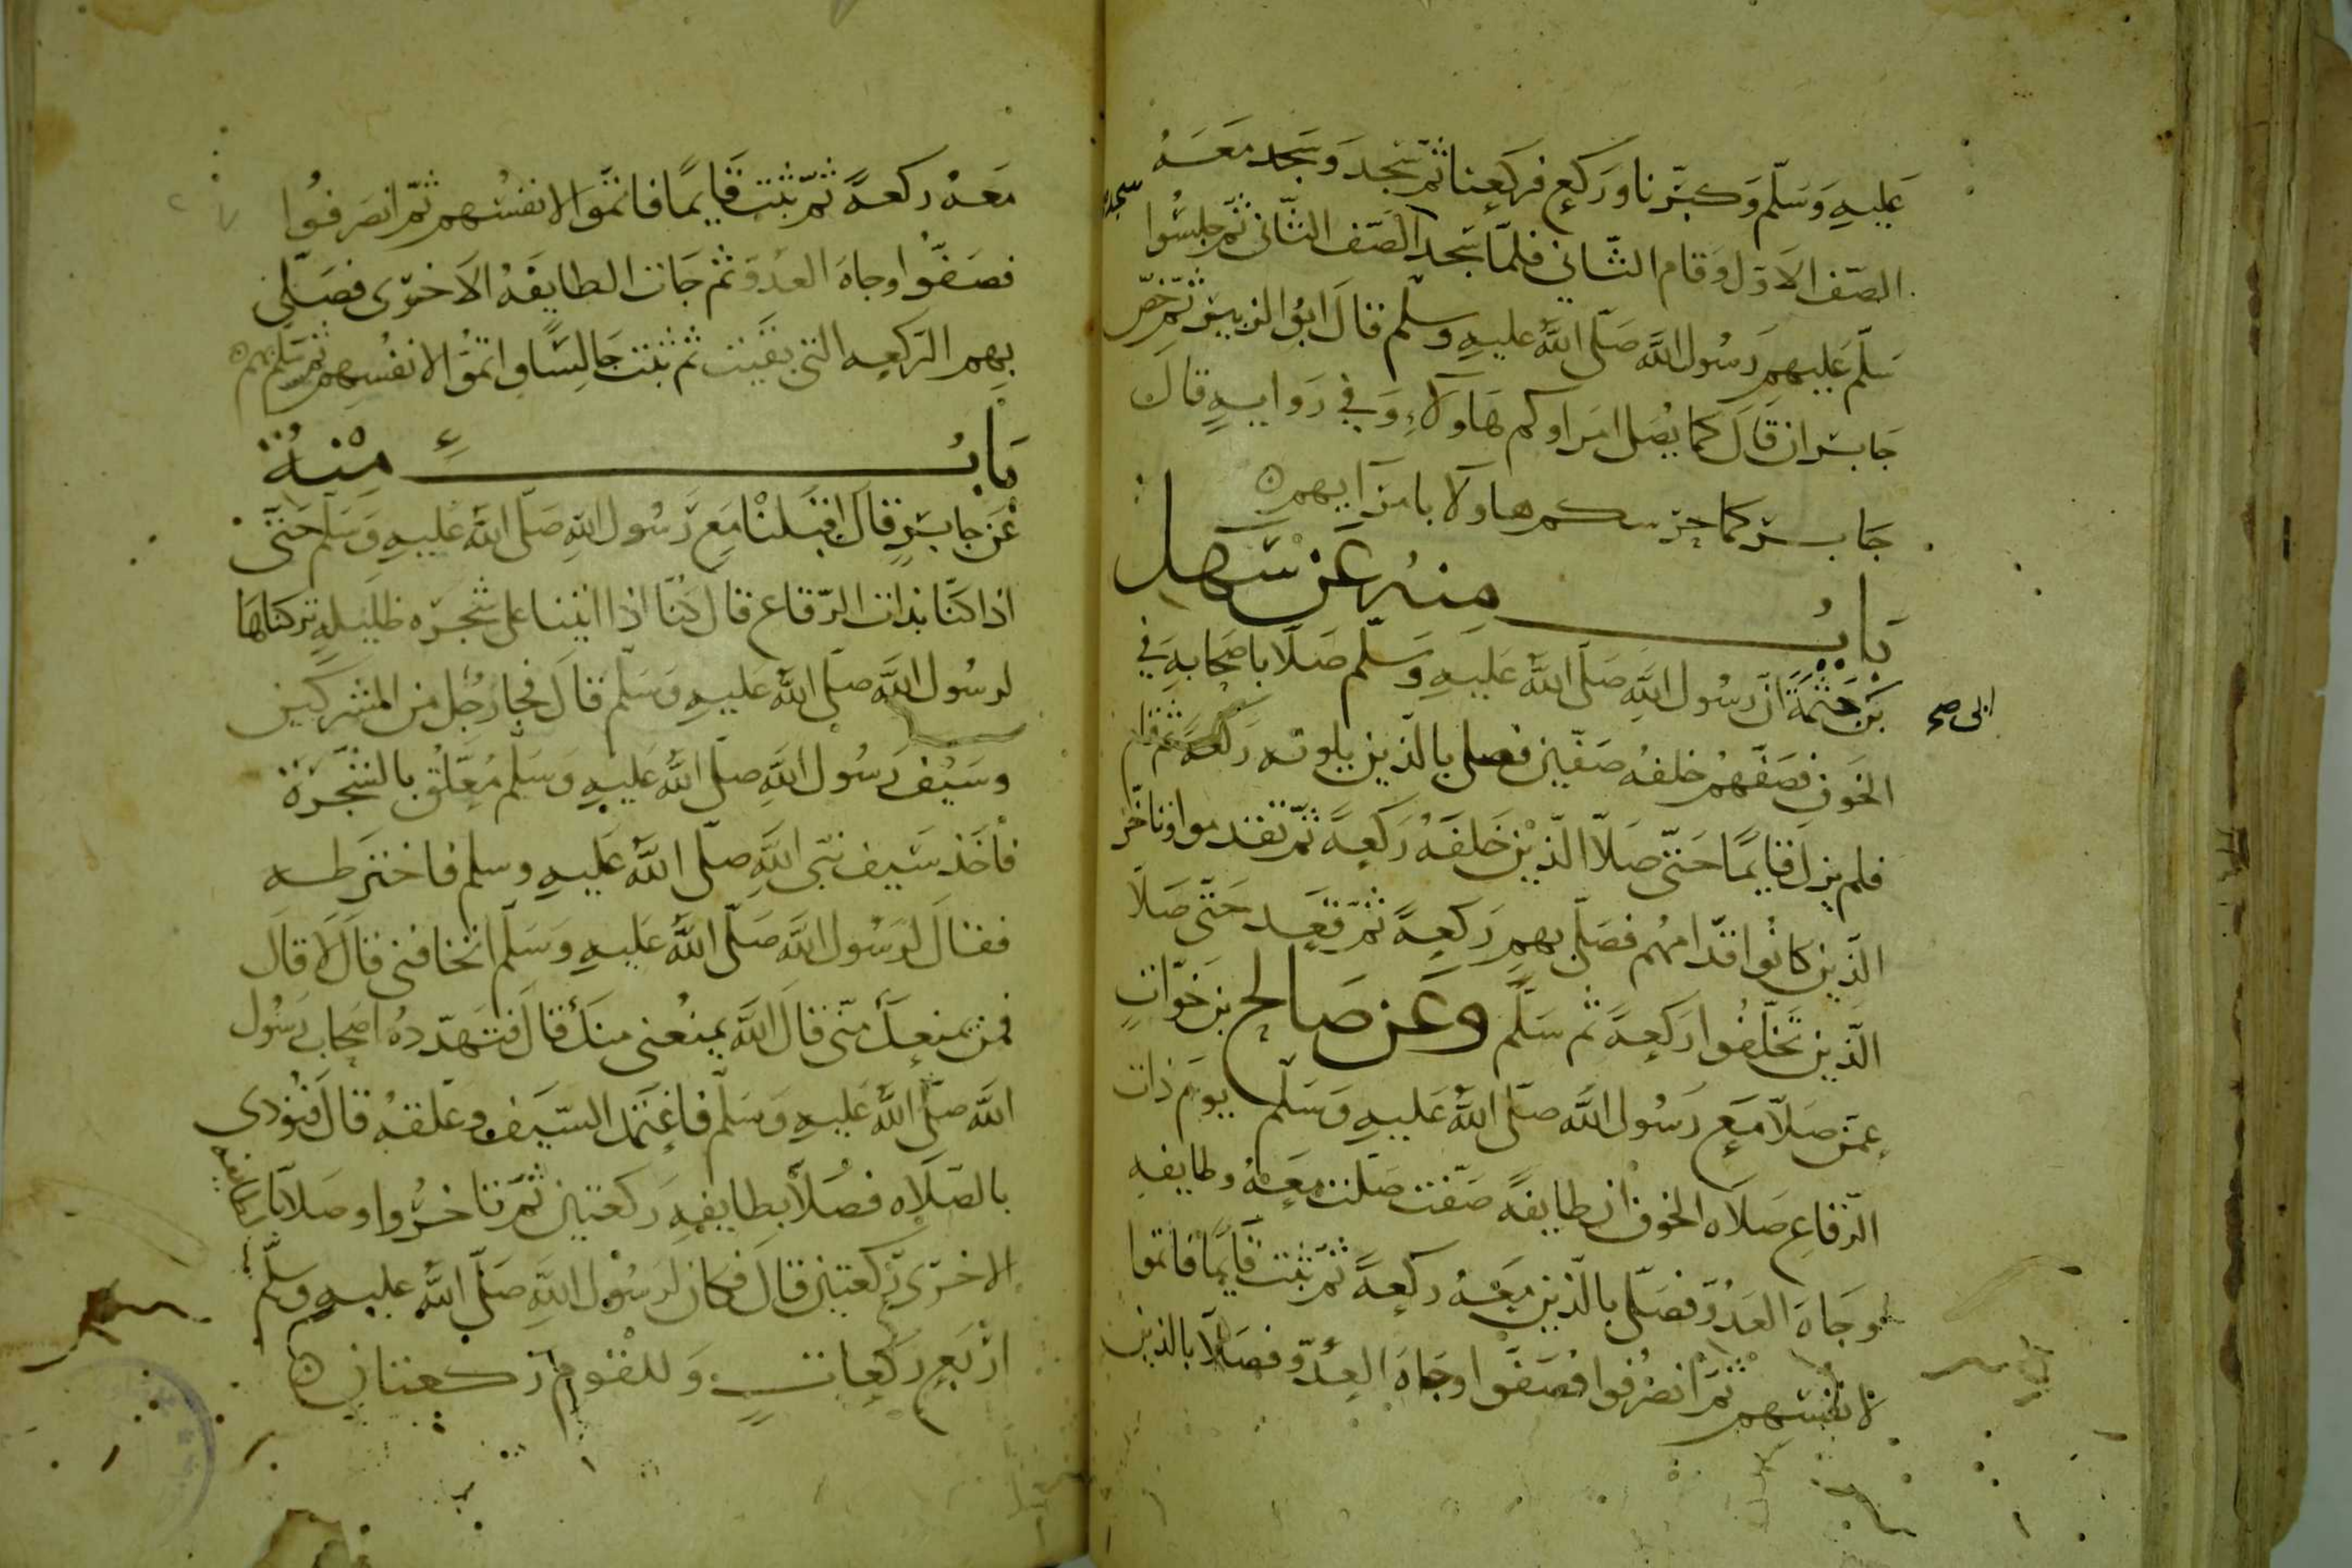 عَلَيهِ وَسَلّم وَكبّرنا وَرَكع فركعنا ثمّ سَجدَ وسَجد مَعَهُ
الصّف الاوّل وَقام الثّاني فلمّا سَجد الصّف الثّاني ثمّ جلسُوا
سَلّم عَليهم رَسُول اللَّه صَلّى اللَّه عليهِ وسلّم قالَ ابُو الزبير ثمّ خصّ
جَابر ان قالَ كما يُصلى امراوكم هَاولآءِ وَفي رَوايةٍ قالَ
جَابر كما حرسكم هاولا بامرايهم
بَابُ منهُ عَن سَهل
بَن حَثمَة انّ رسُول اللَّهِ صَلّى اللَّه عَليهِ وَسلّم صَلّا باصحَابهِ في
ابى صح
الخَوف فصَفّهُم خلفهُ صَفّين فصلى بالّذين يلونه رَكعَةً ثم قام
فلم يزل قايمًا حَتّى صَلّا الّذين خَلفَهُ رَكعَةً ثمّ تقدموا وتاخّر
الّذين كانُوا قدّامهُم فصَلّى بهم رَكعةً ثمّ قعَد حَتّى صَلّا
الّذين تخلّفُوا رَكعةً ثم سَلّم وَعَن صَالح بن خوّاتٍ
عمّن صَلّا مَع رَسُول اللَّه صَلّى اللَّه عَليهِ وَسَلّم يومَ ذات
الرّقاع صَلاه الخوف ان طايفةً صَفّت صَلّت مَعَهُ وطايفه
وجَاهَ العَدُوّ فصَلّى بالّذين مَعَهُ ركعةً ثمّ ثبَت قايمًا فاتموا
لانفسهم ثمّ انصَرفوا فصَفّوا وجَاهَ العدُوّ فصَلّا بالّذين
معَهُ ركعةً ثمّ ثبَت قَايمًا فاتمّوا لانفسُهم ثمّ انصَرفُوا
فصَفّوا وجاهَ العَدوّ ثم جَات الطايفَهُ الاَخرى فصَلّى
بهم الرّكعه التى بقيَت ثم ثبَت جَالسًا واتمّوا لانفُسِهم ثم سلّم بهم
بَابُ مِنْهُ
عَن جابرٍ قالَ اقبَلنْا مَع رَسُول اللهِ صَلّى اللَّه عَليهِ وَسَلّم حَتّى
اذا كنّا بذات الرّقاع قال كنّا اذا اتينا على شجَره ظليلهٍ تركناها
لرسُول اللَّه صَلّى اللَّه عَليهِ وَسَلّم قالَ فجا رجُل من المشركين
وسَيُف رَسُول اللَّهِ صَلّى اللَّه عَليهِ وَسَلم مُعَلّق بالشّجَرَة
فاخَذ سَيف نبّى اللَّهِ صَلّى اللَّه عَليهِ وسلم فاخترطه
فقالَ لرَسُول اللَّه صَلّى اللَّه عَليهِ وَسَلّم اتخافنى قالَ لَا قالَ
فمن يمنعكَ منّى قالَ اللَّه يمنُعنى منكَ قالَ فتَهدّدهُ اصحاب رَسُول
اللَّه صَلّى اللَّه عَليهِ وَسَلّم فاغمَد السّيَف وعَلّقهُ قالَ فنُودى
بالصّلاه فصَلّا بطايفهِ رَكعتين ثمّ تاخّرُوا وصَلّا بالطايفه
الاخرى رَكعتين قالَ فكان لرَسُول اللَّهِ صَلّى اللَّه عليهِ وسَلّم
ارْبَع رَكعاتٍ وَللقوم ركعتان